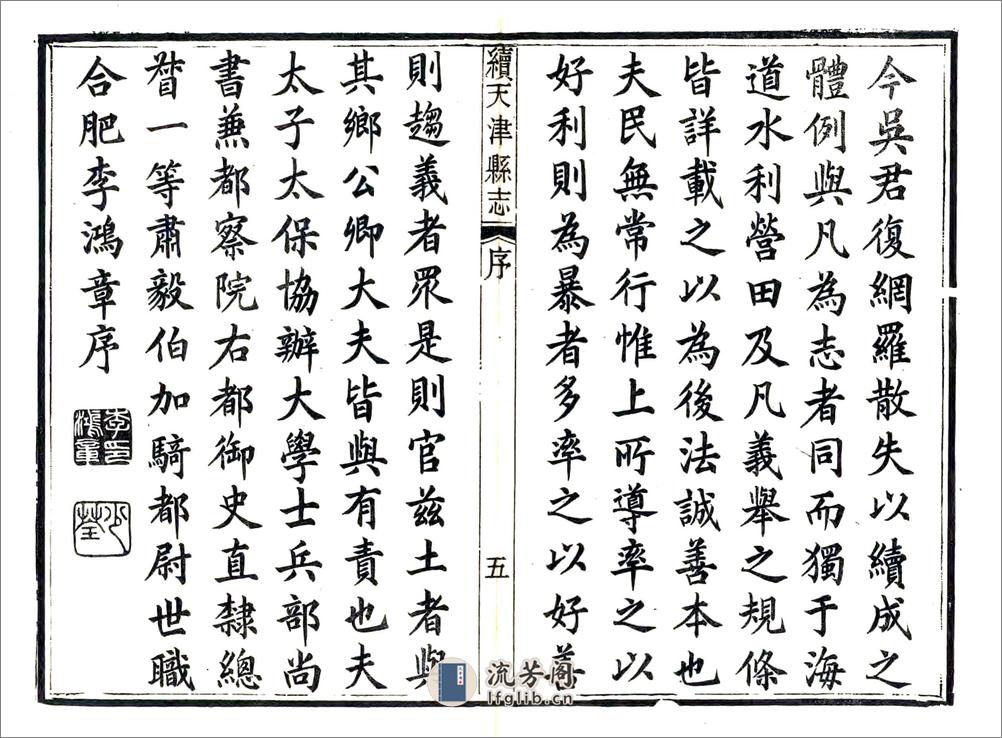 今吳君復網羅散失以續成之
體例與凡為志者同而獨于海
道水利營田及凡義舉之規條
皆詳載之以為後法誠善本也
夫民無常行惟上所導率之以
好利則為暴者多率之以好義
續天津縣志 序 五
則趨義者眾是則官兹土者與
其鄉公卿大夫皆與有責也夫
太子太保協辦大學士兵部尚
書兼都察院右都御史直隸總
督一等肅毅伯加騎都尉世職
合肥李鴻章序
李鴻章印
少荃
流芳阁
lfglib.cn